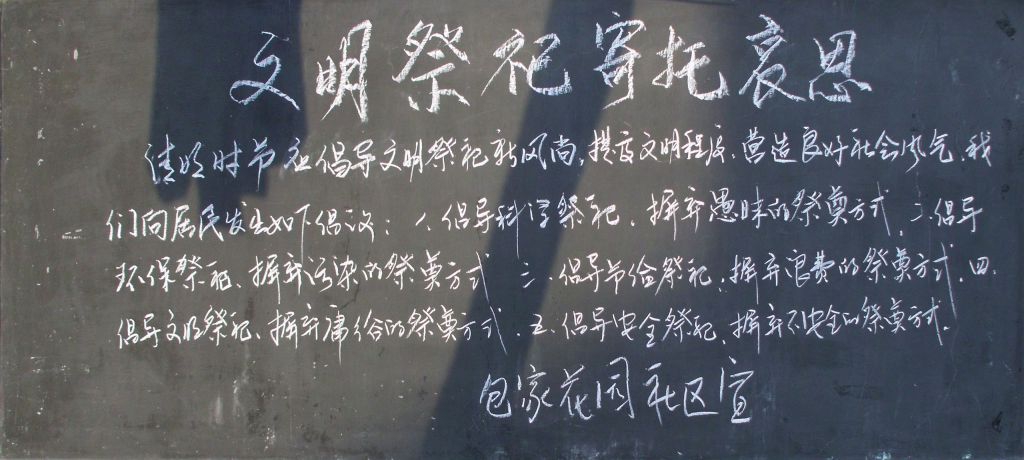 文明祭祀寄托哀思
清明时节在倡导文明祭祀新风尚,提高文明程度,营造良好社会风气,我
们向居民发出如下倡议:一、倡导科学祭祀、摒弃愚昧的祭奠方式,二、倡导
环保祭祀、摒弃污染的祭奠方式 三、倡导节俭祭祀,摒弃浪费的祭奠方式,四、
倡导文明祭祀、摒弃的祭奠方式,五、倡导安全祭祀、摒弃不安全的祭奠方式.
包家花园社区宣